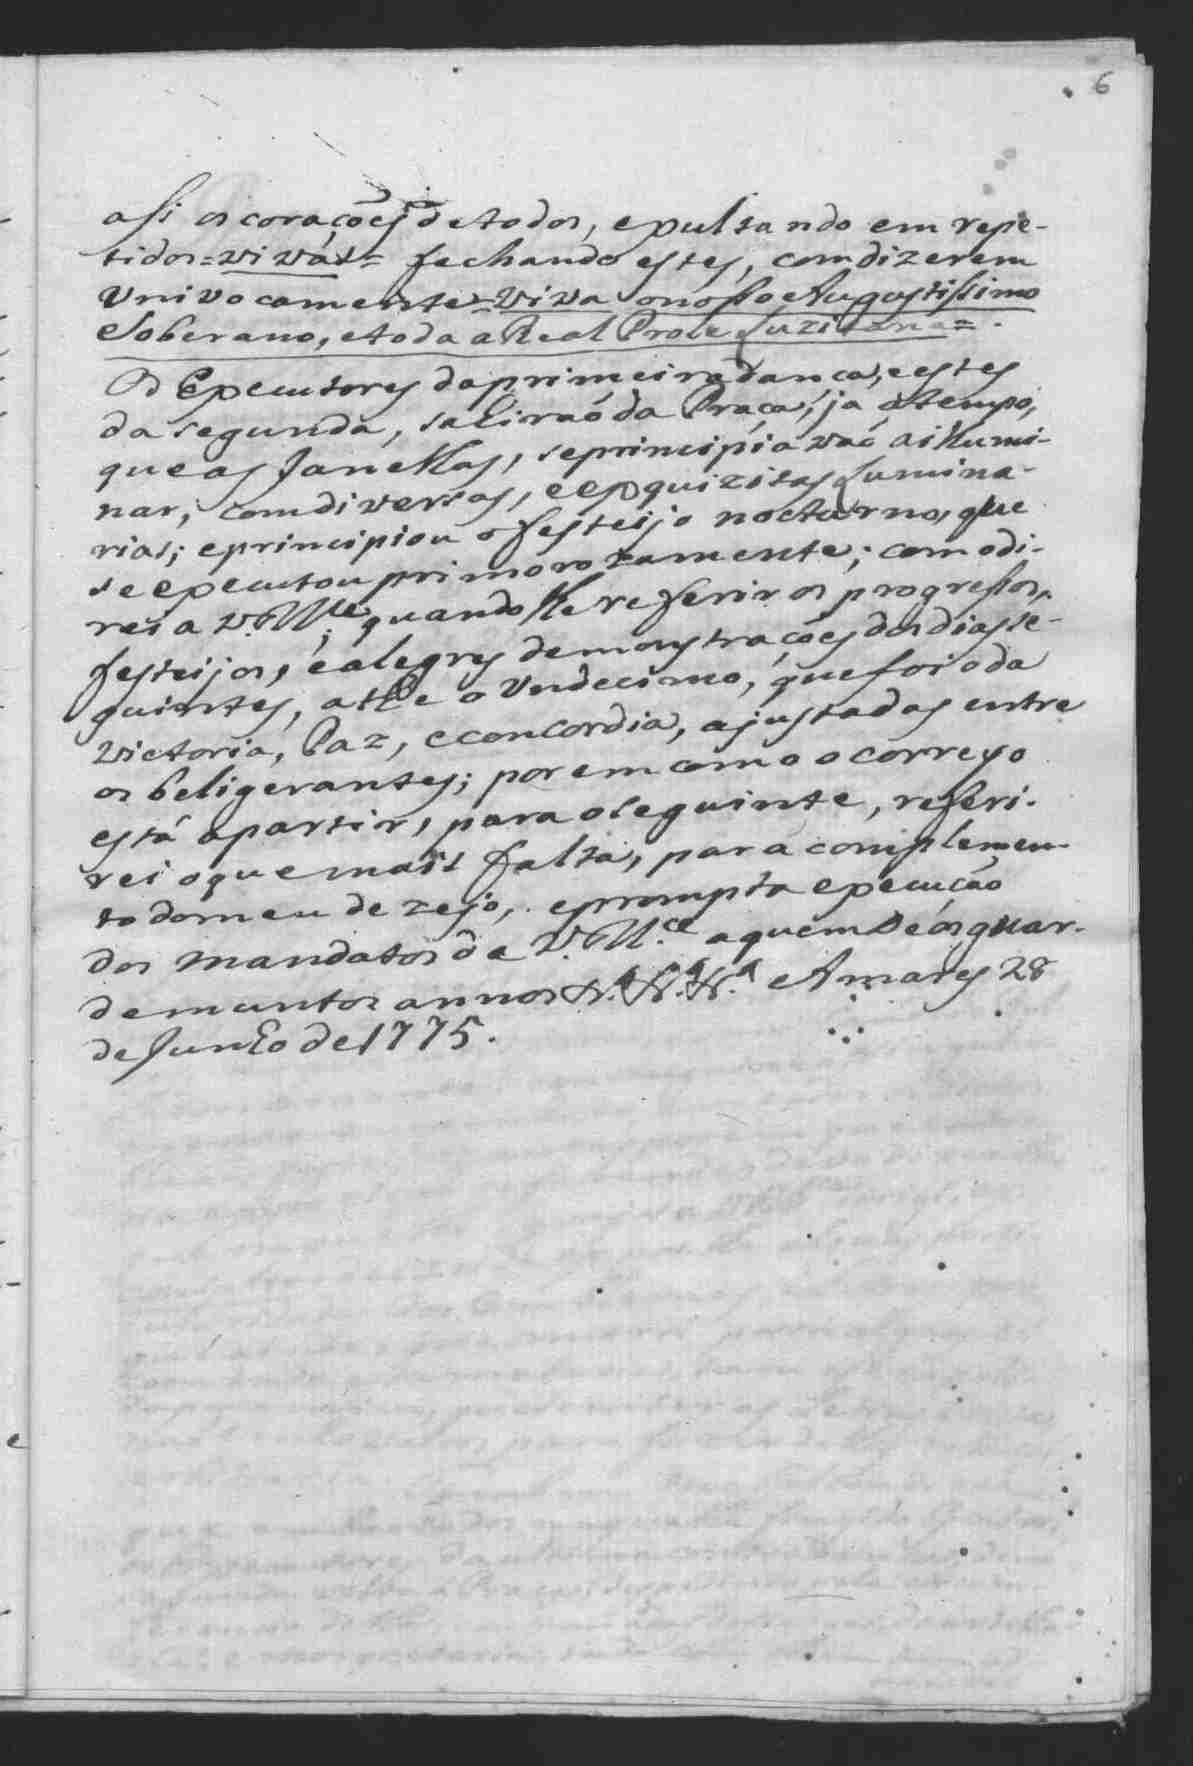 6
asi os coraçoẽs de todos, expulsando em repe-
tidos = vivas = fechando estes, com dizerem
Univocamente = Viva o nosso Augustissimo
Soberano, e toda a Real Prole Luzitana =.
Os Executores da primeira dança, e estes
da segunda, sahiraõ da Praça, ja a tempo,
que as Janellas, se principiavaõ a illumi-
nar, com diversas, e exquizitas Lumina-
rias; e principiou o festeijo nocturno, que
se executou primorozamente; como di-
rei a V. M.ce quando lhe referir os progressos,
festeijos, e alegres demonstraçoẽs dos dias se-
guintes, athe o Undecimo, que foi o da
Victoria, Paz, e concordia, ajustadas entre
os beligerantes; porem como o correyo
está a partir, para o seguinte, referi-
rei o que mais falta, para complemen-
to do meu dezejo, e prompta execuçaõ
dos mandatos de V. M.ce a quem Deos guar-
de muntos annos N.ª N.ª N.ª Amares 28
de Junho de 1775.